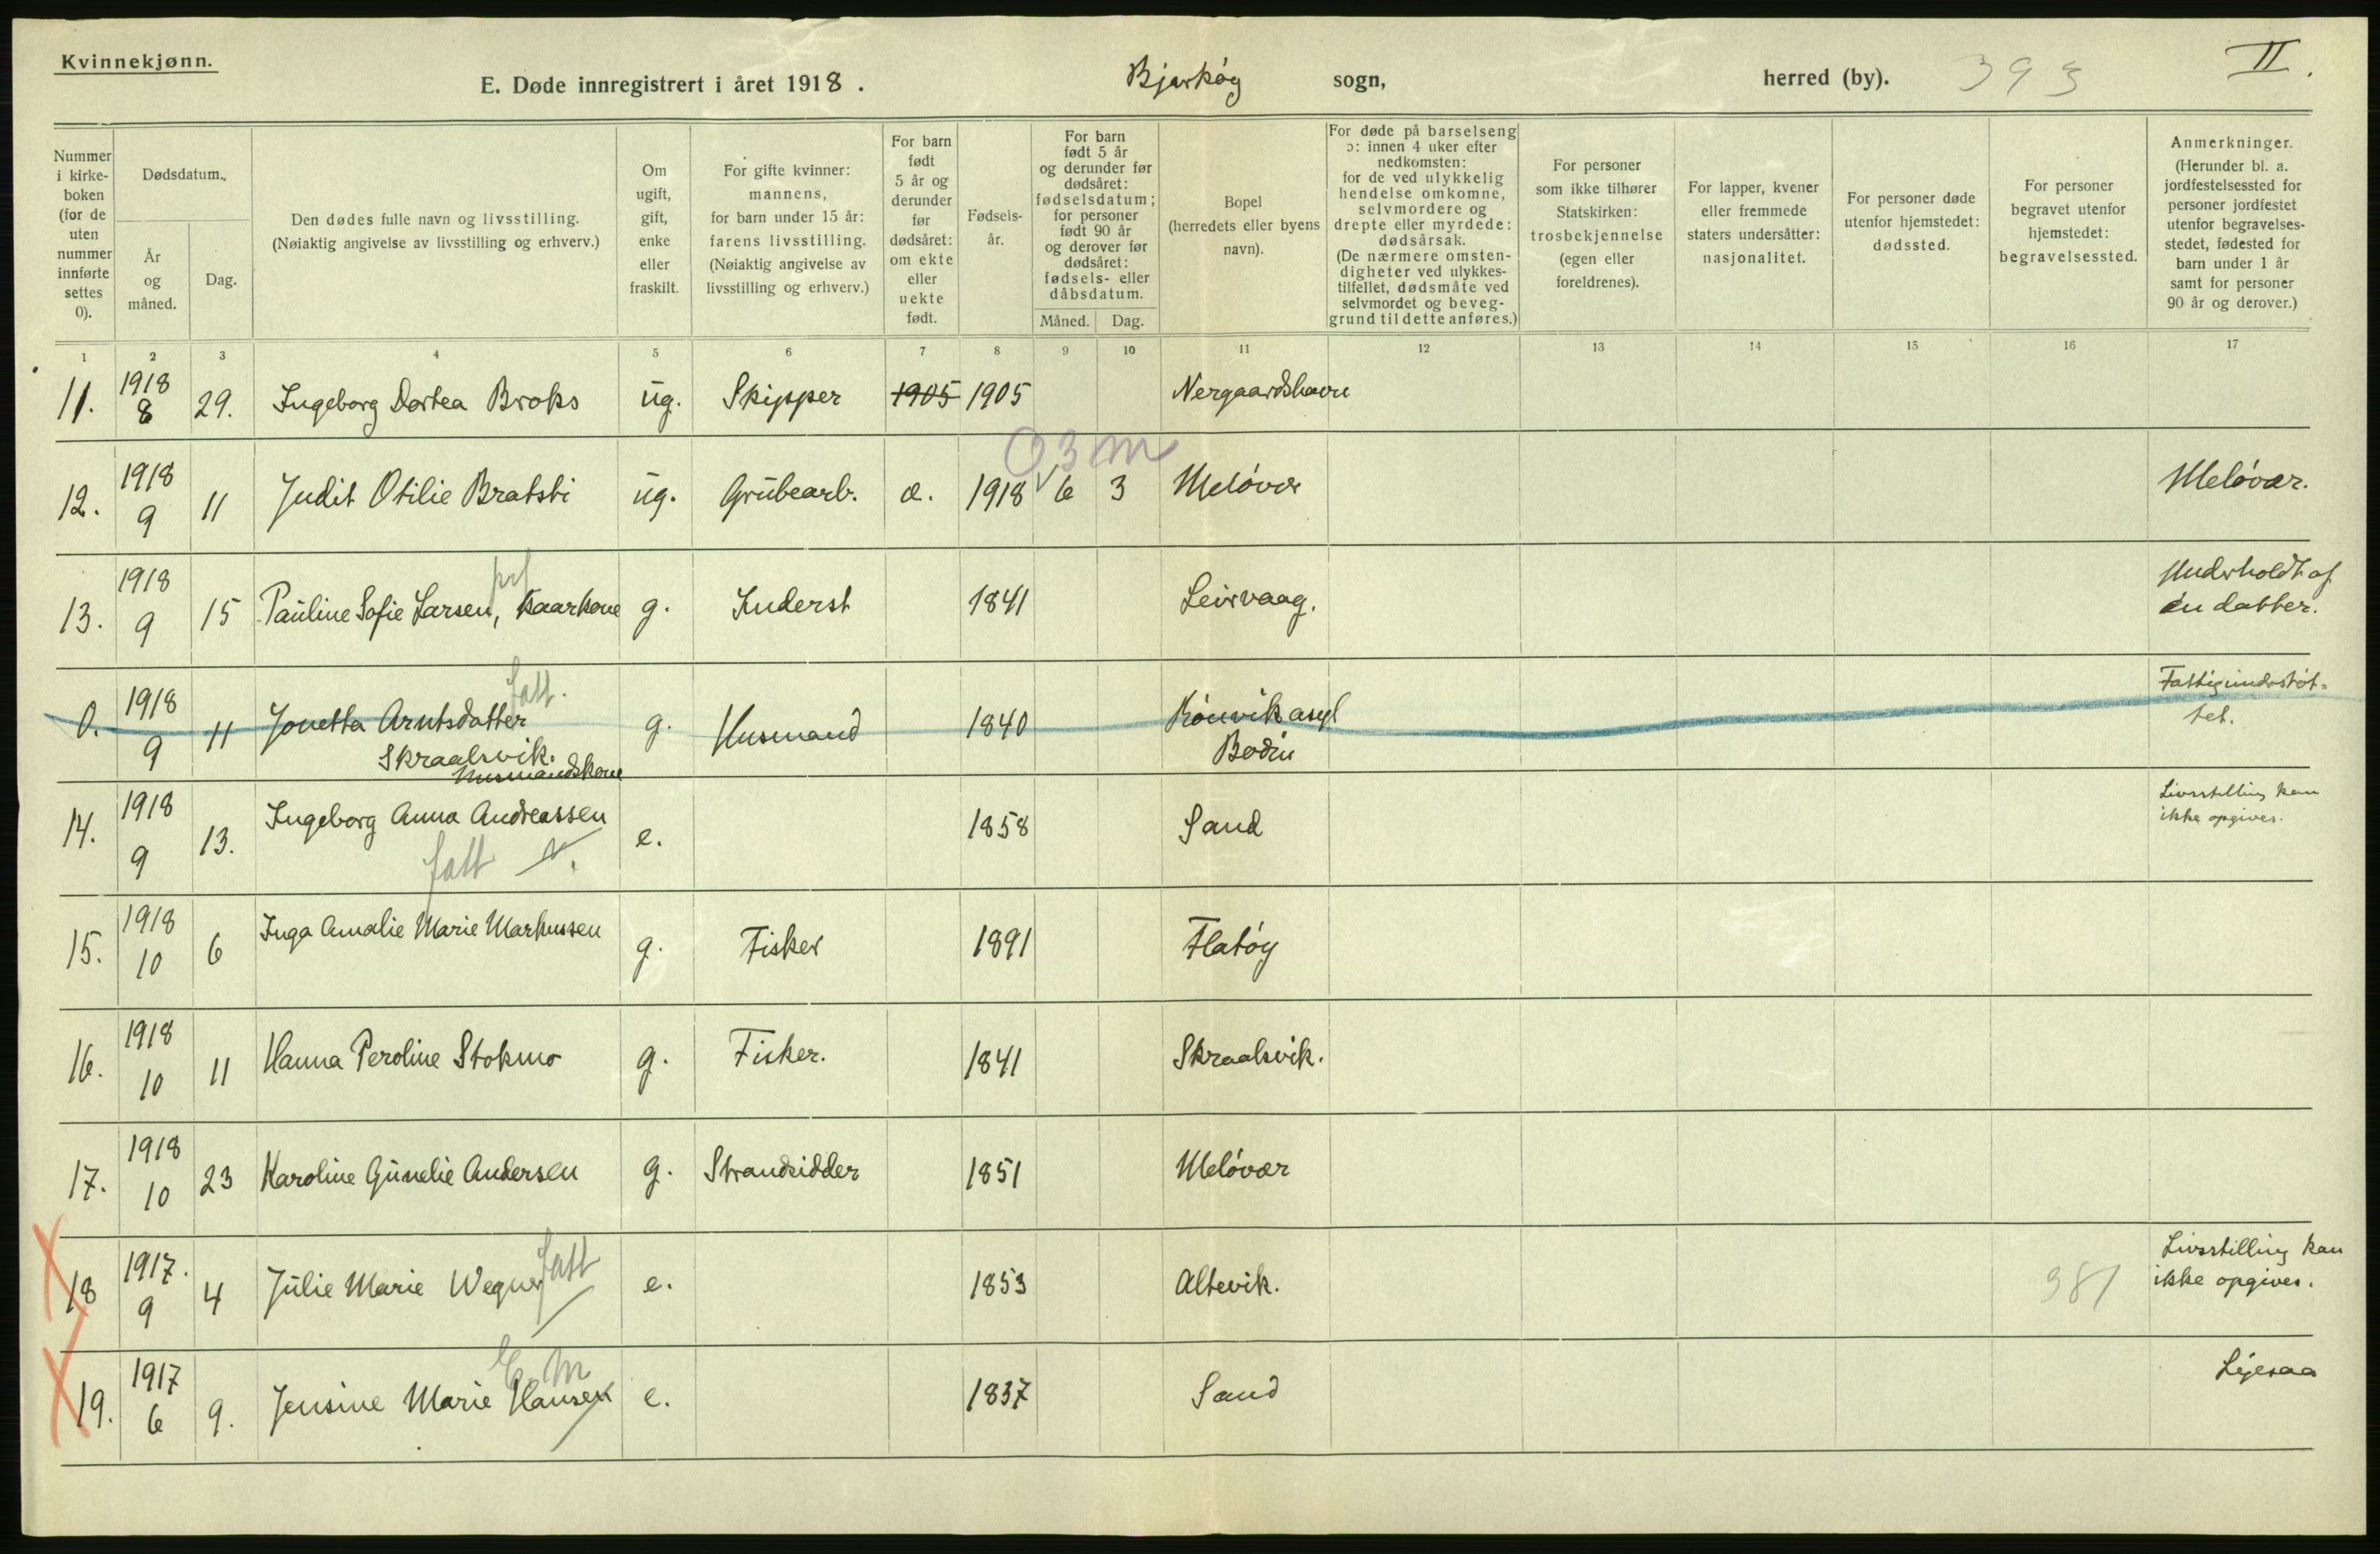 Kvinnekjønn.
E. Døde innregistrert i året 1918. Bjarkøy sogn, herred (by). 393 II.
Nummer i kirke- boken (for de uten nummer innførte settes 0).
Dødsdatum.
År og måned.
Dag.
Den dødes fulle navn og livsstilling.
(Nøiaktig angivelse av livsstilling og erhverv.)
Om ugift, gift, enke eller fraskilt.
For gifte kvinner: mannens, for barn under 15 år: farens livsstilling. (Nøiaktig angivelse av livsstilling og erhverv.)
For barn født 5 år og derunder før dødsåret: om ekte eller uekte født.
Fødsels- år.
For barn født 5 år og derunder før dødsåret: fødselsdatum; for personer født 90 år og derover før dødsåret: fødsels- eller dåbsdatum.
Måned. Dag.
Bopel (herredets eller byens navn).
For døde på barselseng ɔ: innen 4 uker efter nedkomsten: for de ved ulykkelig hendelse omkomne, selvmordere og drepte eller myrdede: dødsårsak. (De nærmere omsten- digheter ved ulykkes- tilfellet, dødsmåte ved selvmordet og beveg- grund til dette anføres.)
For personer som ikke tilhører Statskirken: trosbekjennelse (egen eller foreldrenes).
For lapper, kvener eller fremmede staters undersåtter: nasjonalitet.
For personer døde utenfor hjemstedet: dødssted.
For personer begravet utenfor hjemstedet: begravelsessted.
Anmerkninger. (Herunder bl. a. jordfestelsessted for personer jordfestet utenfor begravelses- stedet, fødested for barn under 1 år samt for personer 90 år og derover.)
1 2 3 4 5 6 7 8 9 10 11 12 13 14 15 16 17
11. 1918 8 29. Ingeborg Dortea Broks ug. Skipper 1905 1905 Nergaardshavn
03m
12. 1918 9 11 Judit Otilie Bratsti ug. Grubearb. e. 1918 6 3 Meløvær Meløvær.
13. 1918 9 15 Pauline Sofie Larsen, Kaarkone g. Inderst 1841 Leirvaag. Underholdt af en datter.
0. 1918 9 11 Jonetta Arntsdatter fatt. g. Husmand 1840 Rønvik asyl Fattigunderstøt- tet.
Skraalsvik. Bodin
Husmandskone
14. 1918 9 13. Ingeborg Anna Andreassen e. 1858 Sand Livsstilling kan ikke opgives.
fatt
15. 1918 10 6 Inga Amalie Marie Markussen g. Fisker 1891 Flatøy
16. 1918 10 11 Hanna Peroline Stokmo g. Fisker. 1841 Skraalsvik.
17. 1918 10 23 Karoline Gunelie Andersen g. Strandsidder 1851 Meløvær
18 1917. 9 4 Julie Marie Wegner fatt e. 1853 Altevik. 381 Livsstilling kan ikke opgives.
E. m
19. 1917 6 9. Jensine Marie Hansen e. 1837 Sand